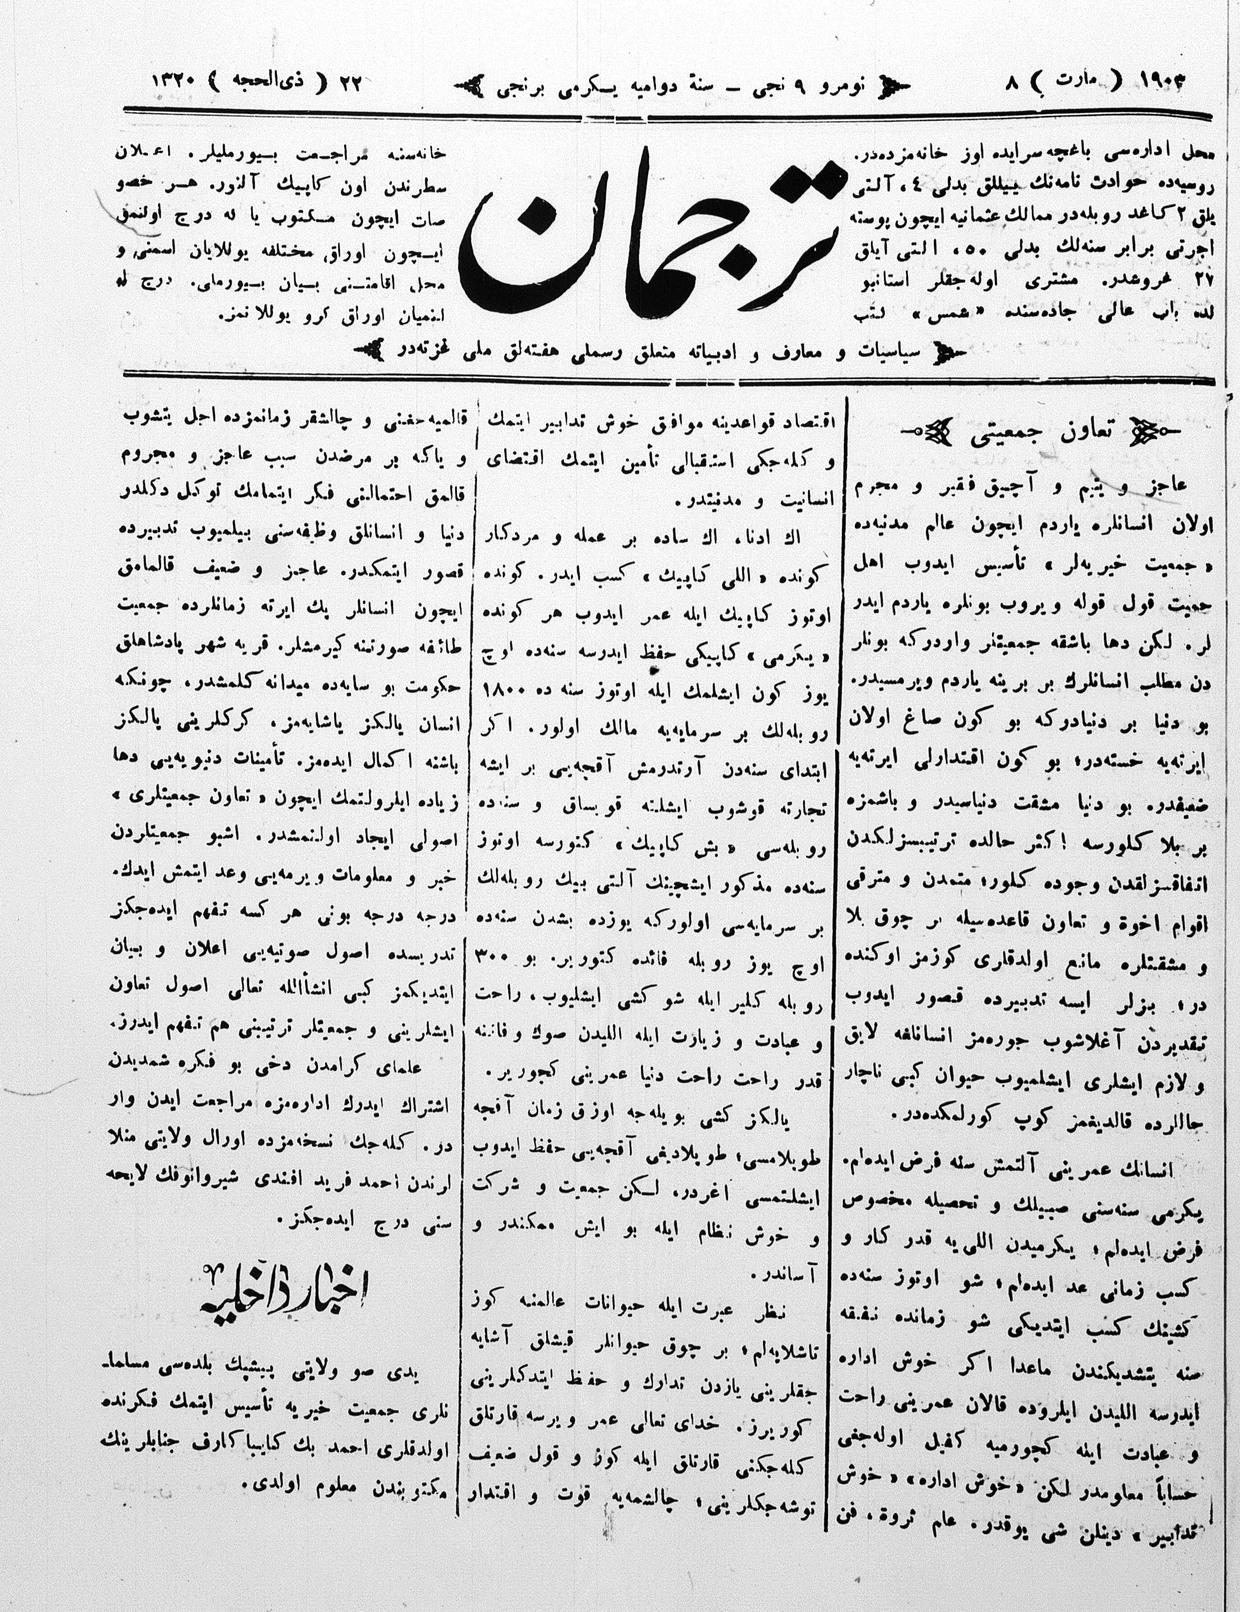 ١٩٠٣ ( مارت ) ٨
نومرو ٩ نجی – سنهٔ دوامیه یـکرمی برنجی
٢٢ ( ذی‌الحجه ) ١٣٢٠
محل اداره‌سی باغچه‌سرایده اوز خانه‌مزده‌در.
روسیه‌ده حوادث نامه‌نك ییللق بدلی ٤، آلتی
یلق ٢ کاغد روبله‌در ممالك عثمانیه ایچون پوسته
اجرتی برابر سنه‌لك بدلی ٥٠، التی آیلق
٢٧ غروعدر. مشتری اوله‌جقلر استانبو
لده باب عالی جاده‌سنده «شمس» کتب
ترجمان
خانه‌سنه مراجـعت بـیورملیلر. اعـلان
سطرندن اون کاپیك آلنور. هـر خصو
صات ایچون مـکتوب یا له درج اولنمق
ایـچون اوراق مختلفه یوللایان اسمنی و
محـل اقامتـنی بـیان بـیورملی. درج له
لنمیان اوراق کرو یوللانمز.
سیاسیات و معارف و ادبیاته متعلق رسملی هفته‌لق ملی غزته‌در
تعاون جمعیتی
عاجز و یتیم و آچیق فقیر و مجرم
اولان انسانلره یاردم ایچون عالم مدنیه‌ده
«جمعیت خیریه‌لر» تأسیس ایدوب اهل
حمیت قول قوله ویروب بونلره یاردم ایدر
لر. لکن دها باشقه جمعیتلر واردرکه بونلر
دن مطلب انسانلرك بر برینه یاردم ویرمسیدر.
بو دنیا بر دنیادرکه بو کون صاغ اولان
ایرته‌یه خسته‌در؛ بو کون اقتدارلی ایرته‌یه
ضعیفدر. بو دنیا مشقت دنیاسیدر و باشمزه
بر بلا کلورسه اکثر حالده ترتیبسزلکدن
اتفاقسزلقدن وجوده کلور؛ متمدن و مترقی
اقوام اخوة و تعاون قاعده‌سیله بر چوق بلا
و مشقتلره مانع اولدقلری کوزمز اوکنده
در؛ بزلر ایسه تدبیرده قصور ایدوب
تقدیردن آغلاشوب جوره‌مز انسانلغه لایق
و لازم ایشلری ایشلمیوب حیوان کبی ناچار
حاللرده قالدیغمز کوپ کورلمکده‌در.
انسانك عمرینی آلتمش سنه فرض ایده‌لم.
یکرمی سنه‌سنی صبیلك و تحصیله مخصوص
فرض ایده‌لم؛ یکرمیدن اللی‌یه قدر کار و
کسب زمانی عد ایده‌لم؛ شو اوتوز سنه‌ده
کشینك کسب ایتدیکی شو زمانده نفقه
سنه یتشدیکندن ماعدا اکر خوش اداره
ایدرسه اللیدن ایلروده قالان عمرینی راحت
و عبادت ایله کچورمیه کفیل اوله‌جغی
حساباً معلومدر لکن «خوش اداره» «خوش
تدابیر» دینلن شی یوقدر. عام ثروة، فن
اقتصاد قواعدینه موافق خوش تدابیر ایتمك
و کله‌جکی استقبالی تأمین ایتمك اقتضای
انسانیت و مدنیتدر.
اك ادناء اك ساده بر عمله و مردکار
کونده «اللی کاپیك» کسب ایدر. کونده
اوتوز کاپیك ایله عمر ایدوب هر کونده
«یکرمی» کاپیکی حفظ ایدرسه سنه‌ده اوچ
یوز کون ایشلمك ایله اوتوز سنه ده ١٨٠٠
روبله‌لك بر سرمایه‌یه مالك اولور. اکر
ابتدای سنه‌دن آرتدرمش آقچه‌یی بر ایشه
تجارته قوشوب ایشلته قویساق و سنه‌ده
روبله‌سی «بش کاپیك» کتورسه اوتوز
سنه‌ده مذکور ایشچینك آلتی بیك روبله‌لك
بر سرمایه‌سی اولورکه یوزده بشدن سنه‌ده
اوچ یوز روبله فائده کتوریر. بو ٣٠٠
روبله کلیر ایله شو کشی ایشلیوب، راحت
و عبادت و زیارت ایله اللیدن صوك وفاتنه
قدر راحت راحت دنیا عمرینی کچوریر.
یالکز کشی بویله‌جه اوزق زمان آقچه
طوبلامسی؛ طوبلادیغی آقچه‌یی حفظ ایدوب
ایشلتمسی اغردر، لـکن جمعیت و شرکت
و خوش نظام ایله بو ایش ممکندر و
آساندر.
نظر عبرت ایله حیوانات عالمنه کوز
تاشلایه‌لم؛ بر چوق حیوانلر قیشلق آشایه
جقلرینی یازدن تدارك و حفظ ایتدکلرینی
کوریرز. خدای تعالی عمر ویرسه قارتلق
کله‌جکنی قارتلق ایله کوز و قول ضعیف
توشه‌جکلرینی؛ چالشمه‌یه قوت و اقتدار
قالمیه‌جغنی و چالشقر زمانمزده اجل یتشوب
و یاکه بر مرضدن سبب عاجز و مجروم
قالمق احتمالنی فکر ایتمامك توکل دکلدر
دنیا و انسانلق وظیفه‌سنی بیلمیوب تدبیرده
قصور ایتمکدر. عاجـز و ضعیف قالمامق
ایچون انسانلر پك ایرته زمانلرده جمعیت
طائفه صورتنه کیرمشلر. قریه شهر پادشاهلق
حکومت بو سایه‌ده میدانه کلمشدر، چونکه
انسان یالکز یاشایه‌مز. کرکلرینی یالکز
باشنه اکمال ایده‌مز. تأمینات دنیویه‌یی دها
زیاده ایلرولتمك ایچون «تعاون جمعیتلری»
اصولی ایجاد اولنمشدر. اشبو جمعیتلردن
خبر و معلومات ویرمه‌یی وعد ایتمش ایدك.
درجه درجه بونی هر کسه تفهم ایده‌جکز
تدریسده اصول صوتیه‌یی اعلان و بیان
ایتدیکمز کبی انشأالله تعالی اصول تعاون
ایشلرینی و جمعیتلر ترتیبنی هم تفهم ایدرز.
علمای کرامدن دخی بو فکره شمدیدن
اشتراك ایدرك اداره‌مزه مراجعت ایدن وار
در. کله‌جك نسخه‌مزده اورال ولایتی منلا
لرندن احمد فرید افندی شیروانوفك لایحه
سنی درج ایده‌جکز.
اخبار داخلیه
یدی صو ولایتی پیشپك بلده‌سی مسلما-
نلری جمعیت خیریه تأسیس ایتمك فکرنده
اولدقلری احمد بك کنایبا کارف جنابلرینك
مکتوبندن معلوم اولدی.